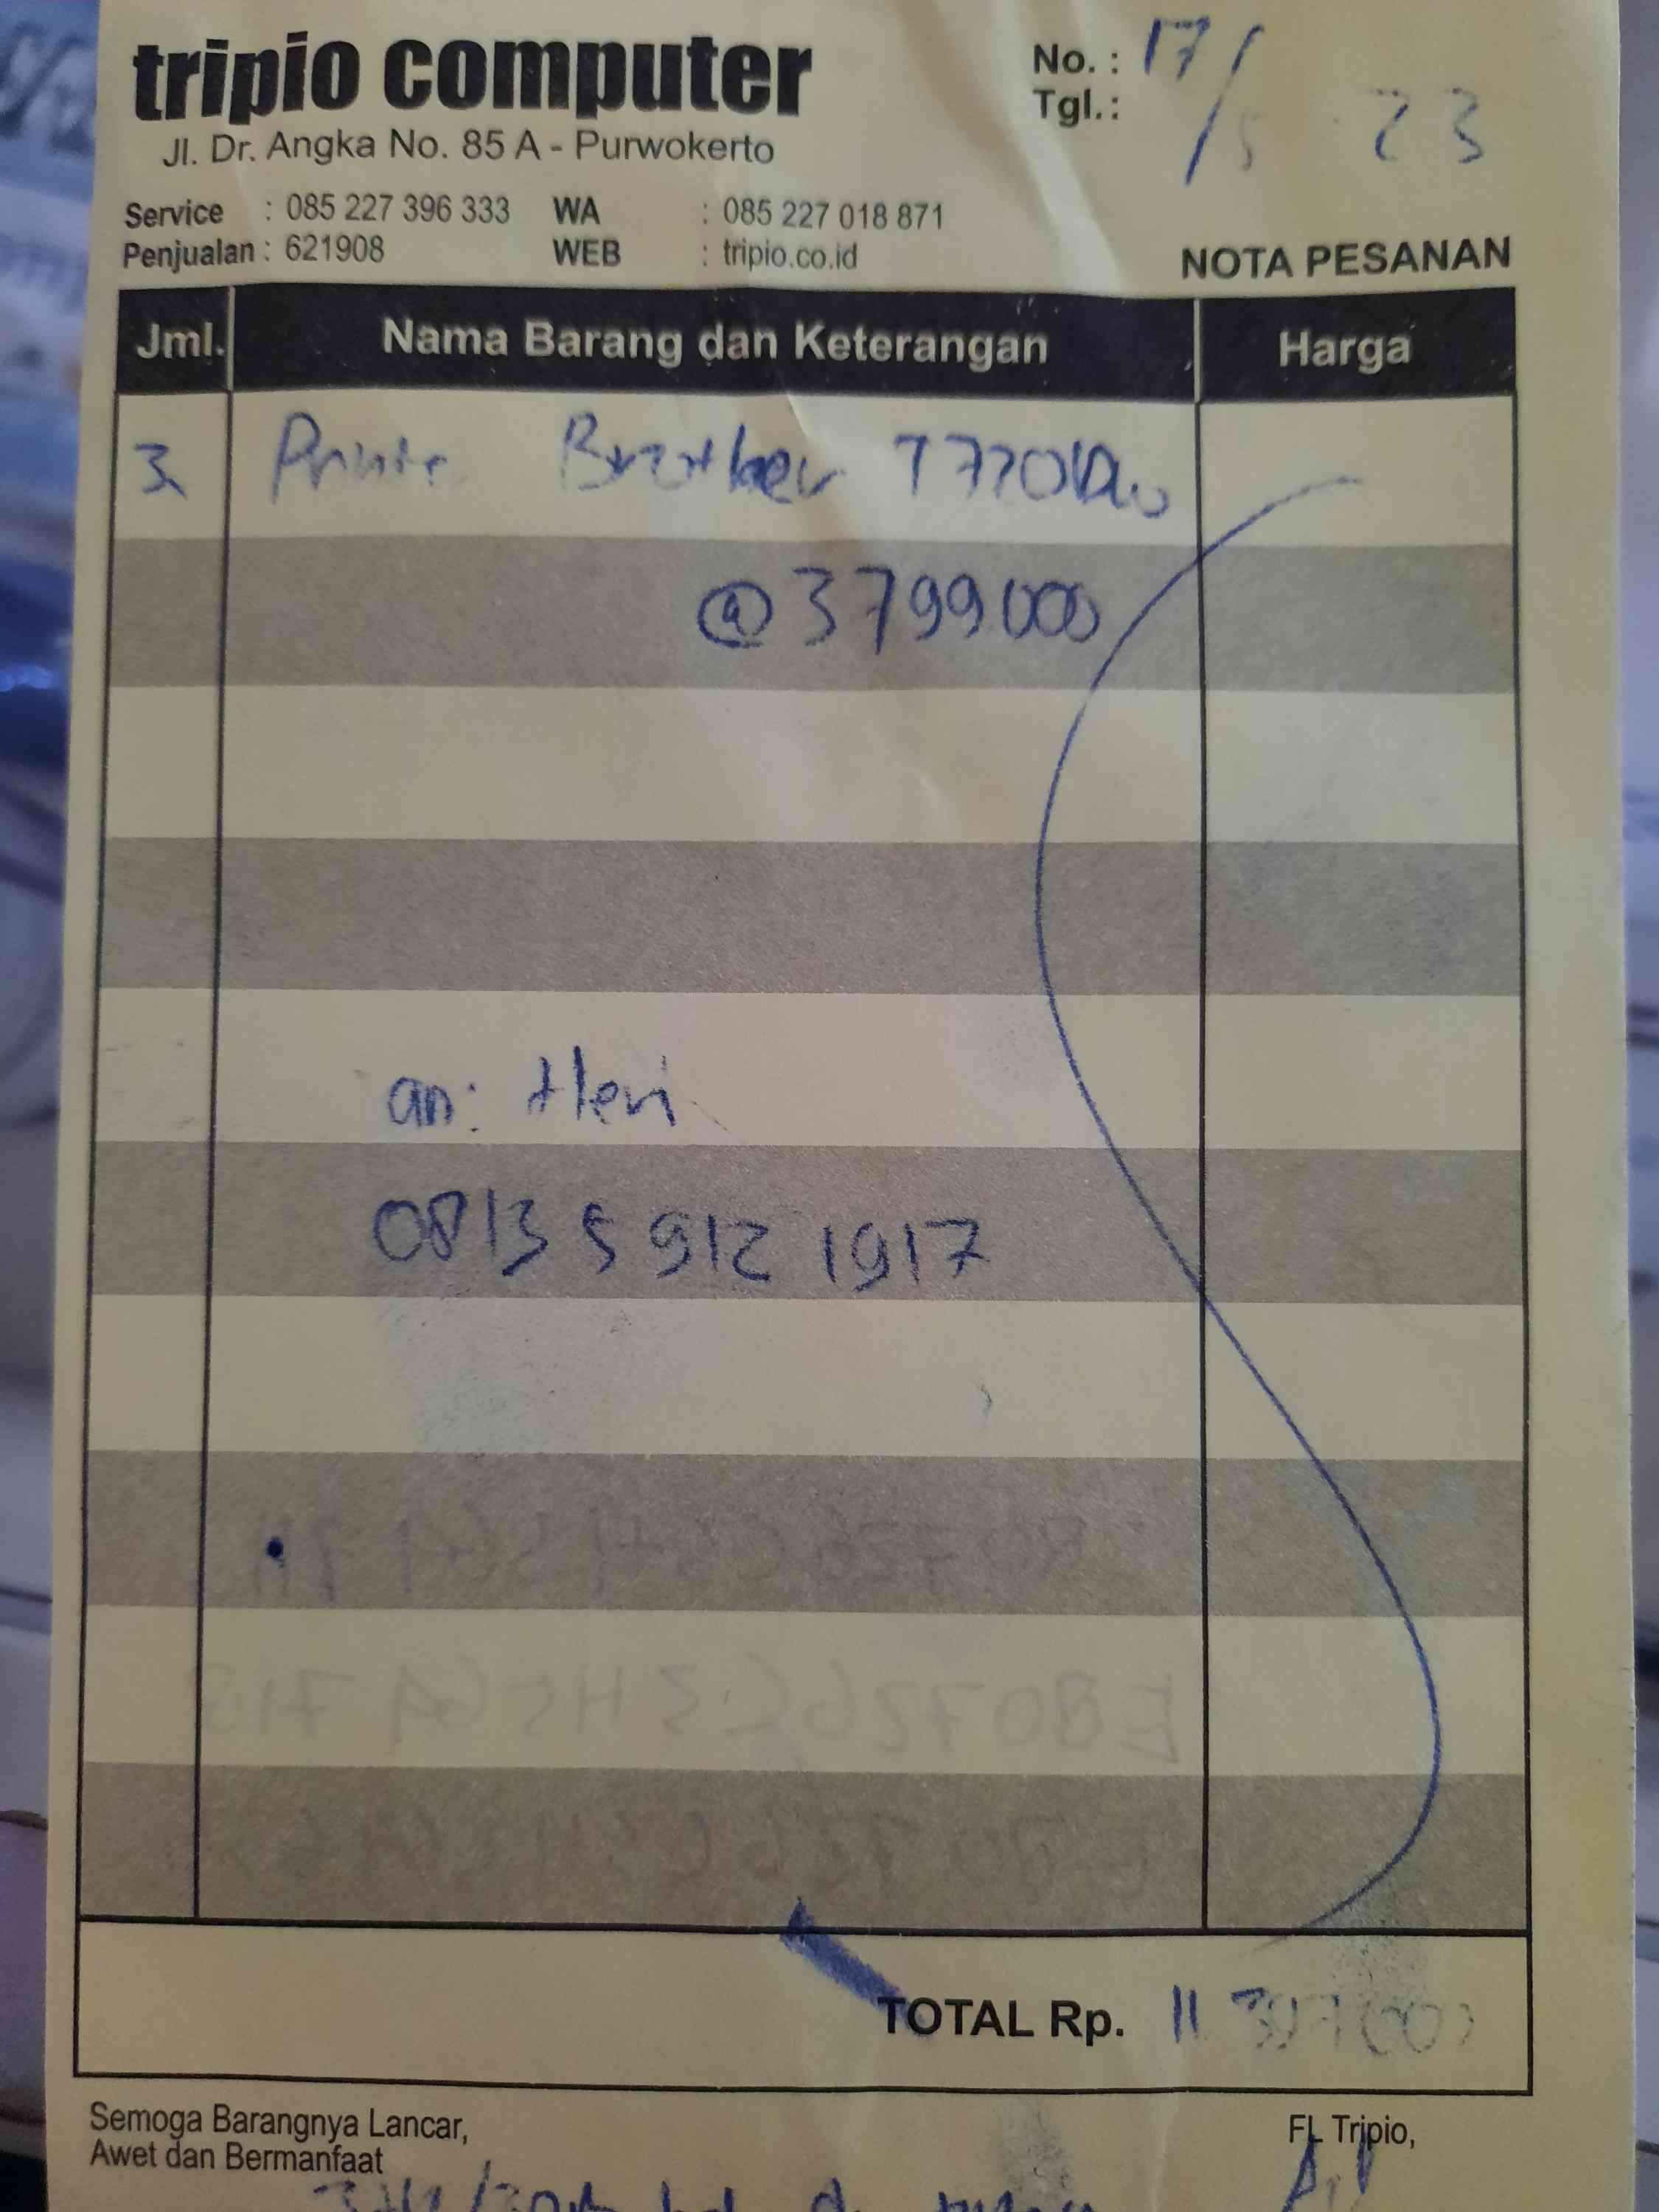 tripio computer
Jl. Dr. Angka No. 85 A - Purwokerto
No. : 17/5 23
Tgl. :
Service : 085 227 396 333 WA : 085 227 018 871
Penjualan : 621908 WEB : tripio.co.id
NOTA PESANAN
Jml. Nama Barang dan Keterangan Harga
3 Printer Brother T720DW
@ 3799000
an: Heri
0813 5 912 1917
E80726C3H564713
TOTAL Rp. 11 397 000
Semoga Barangnya Lancar,
Awet dan Bermanfaat
FL Tripio,